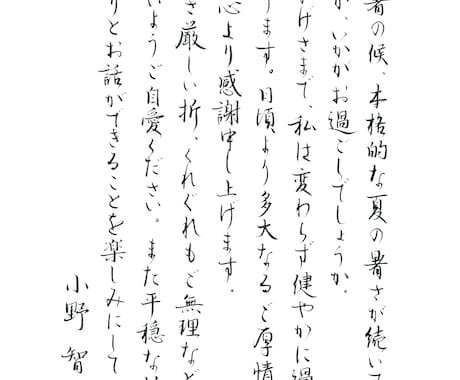 暑の候、本格的な夏の暑さが続いて
が、いかがお過ごしでしょうか。
げさまで、私は変わらず健やかに過
ります。日頃より多大なるご厚情
心より感謝申し上げます。
さ厳しい折、くれぐれもご無理など
いようご自愛ください。また平穏な
りとお話ができることを楽しみにして
小野 智